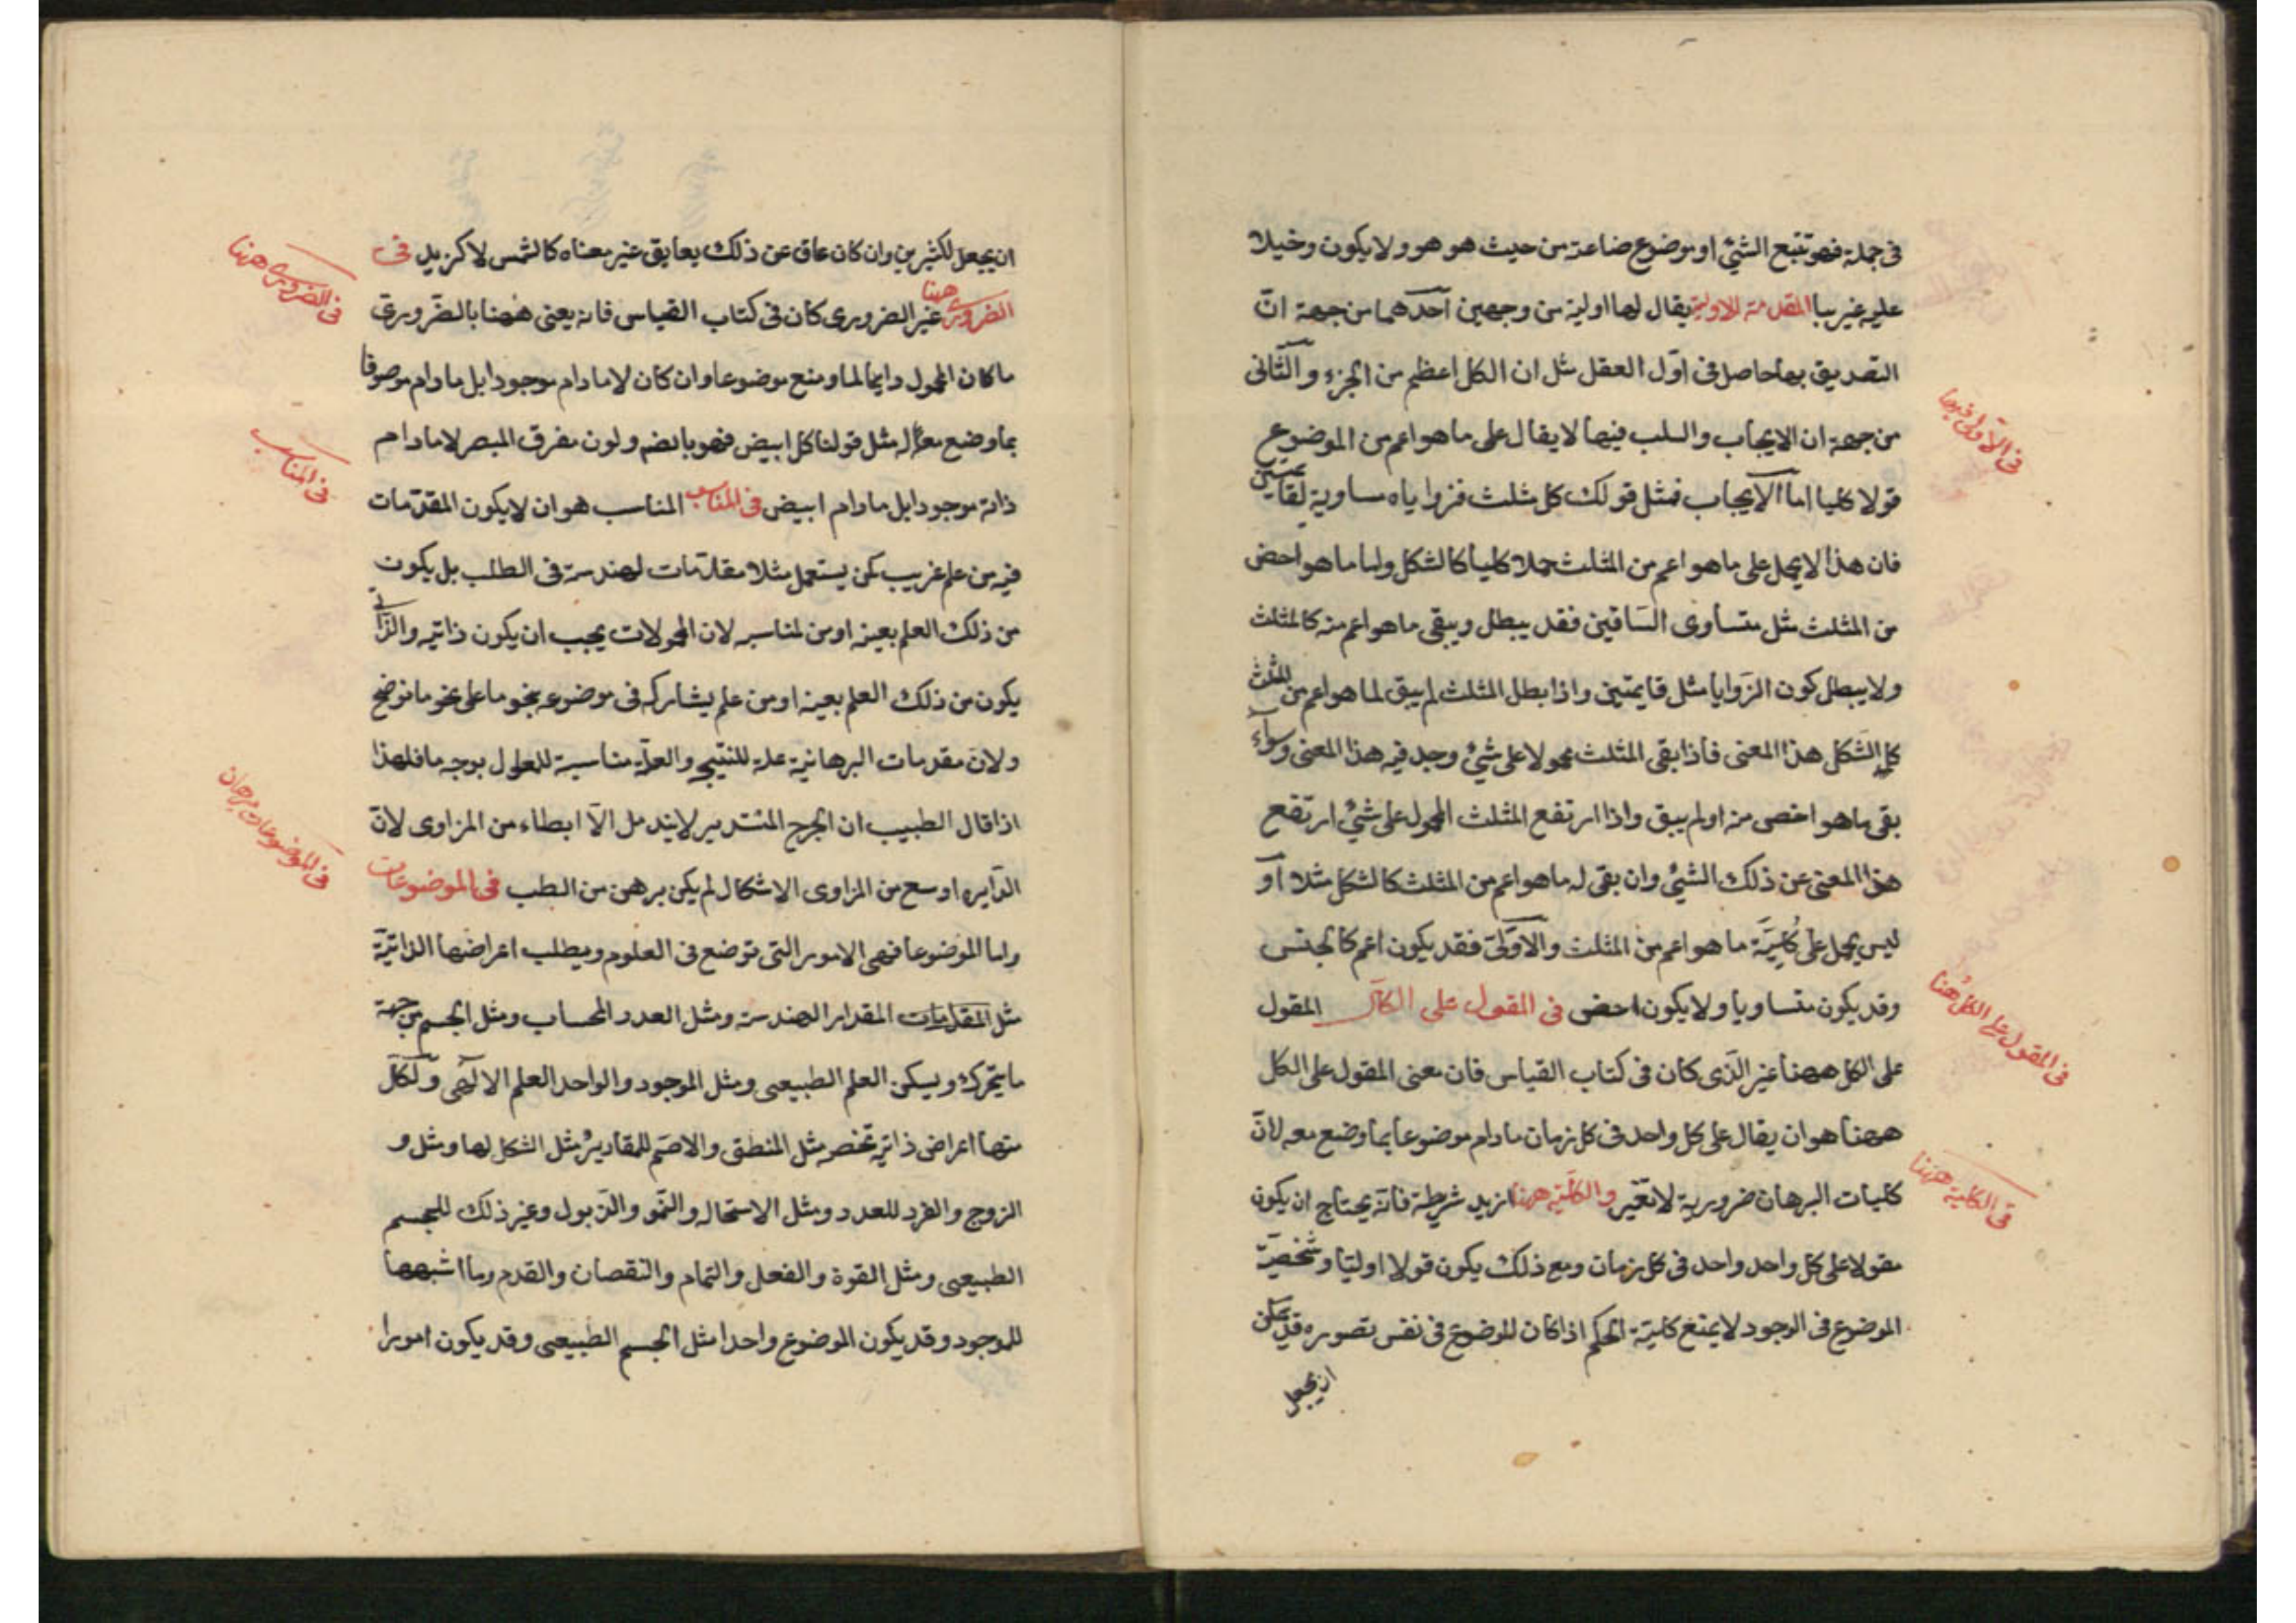 فى جملة فهو تتبع الشئ او موضوع ضاعة من حيث هو هو ولا يكون دخيلا
عليه غريبا المقدمة الاولية يقال لها اولية من وجهين احدهما من جهة انّ
التصديق بها حاصل فى اوّل العقل مثل ان الكل اعظم من الجزء والثّانى
من جهة ان الايجاب والسلب فيها لا يقال على ما هو اعم من الموضوع
قولا كليا اما الايجاب فمثل قولك كل مثلث فزواياه مساوية لقائمتين
فان هذا لا يحمل على ما هو اعم من المثلث حملا كليا كالشكل واما ما هو اخص
من المثلث مثل متساوى السّاقين فقد يبطل ويبقى ما هو اعم منه كالمثلث
ولا يبطل كون الزّوايا مثل قايمتين واذا بطل المثلث لم يبق لما هو اعم من المثلث
كالشّكل هذا المعنى فاذا بقى المثلث محمولا على شئ وجد فيه هذا المعنى وسواء
بقى ما هو اخص منه او لم يبق واذا ارتفع المثلث المحمول على شئ ارتفع
هذا المعنى عن ذلك الشئ وان بقى له ما هو اعم من المثلث كالشكل مثلا او
ليس يحمل على كليّة ما هو اعم من المثلث والاوّلىّ فقد يكون اعم كالجنس
وقد يكون متساويا ولا يكون اخص فى المقول على الكل المقول
على الكل ههنا غير الّذى كان فى كتاب القياس فان معنى المقول على الكل
ههنا هو ان يقال على كل واحد فى كل زمان ما دام موضوعا بما وضع معه لانّ
كليات البرهان ضرورية لا تتغيّر والكليّة ههنا ازيد شرطية فانّه يحتاج ان يكون
مقولا على كل واحد واحد فى كل زمان ومع ذلك يكون قولا اوليّا وشخصيّة
الموضوع فى الوجود لا يمنع كليّة الحكم اذا كان للموضوع فى نفس تصوره قد يمكن
ان يجعل
فى الاوّلى فيها
فى المقول على الكل هنا
فى الكلية ههنا
ان يجعل لكثيرين وان كان عاق عن ذلك بعايق غير معناه كالشمس لا كزيد فى
الضرورى ههنا غير الضرورى كان فى كتاب القياس فانه يعنى ههنا بالضّرورىّ
ما كان المحمول دايما لما وضع موضوعا وان كان لا ما دام موجودا بل ما دام موصوفا
بما وضع معه مثل قولنا كل ابيض فهو بالضم ولون مفرق البصر لا ما دام
ذاته موجودا بل ما دام ابيض فى المناسب المناسب هو ان لا يكون المقدّمات
فيه من علم غريب كمن يستعمل مثلا مقدّمات لهندسة فى الطلب بل يكون
من ذلك العلم بعينه او من لمناسبه لان المحمولات يجب ان يكون ذاتيه والذّاتى
يكون من ذلك العلم بعينه او من علم يشاركه فى موضوعه بنحو ما على نحو ما نوضح
ولانّ مقدمات البرهانيّة علة للنتيجه والعلّة مناسبة للمعلول بوجه ما فلهذا
اذا قال الطبيب ان الجرح المستدير لا يندمل الاّ ابطاء من المزاوى لانّ
الدّايره اوسع من المزاوى الاشكال لم يكن برهن من الطب فى الموضوعات
واما الموضوعا فهى الامور التى توضع فى العلوم ويطلب اعراضها الذاتيّة
مثل المقدمات المقدار الهندسة ومثل العدد الحساب ومثل الجسم من جهة
ما يتحرك ويسكن العلم الطبيعى ومثل الموجود والواحد العلم الالهى ولكلّ
منها اعراض ذاتيه تخصه مثل المنطق والاصم للمقادير مثل الشكل لها ومثل و
الزوج والفرد للعدد ومثل الاستحاله والنّمو والذّبول وغير ذلك للجسم
الطبيعى ومثل القوة والفعل والتمام والنقصان والقدم وما اشبهها
للموجود وقد يكون الموضوع واحدا مثل الجسم الطبيعى وقد يكون امورا
فى الضرورى ههنا
فى المناسب
فى الموضوعات برهان